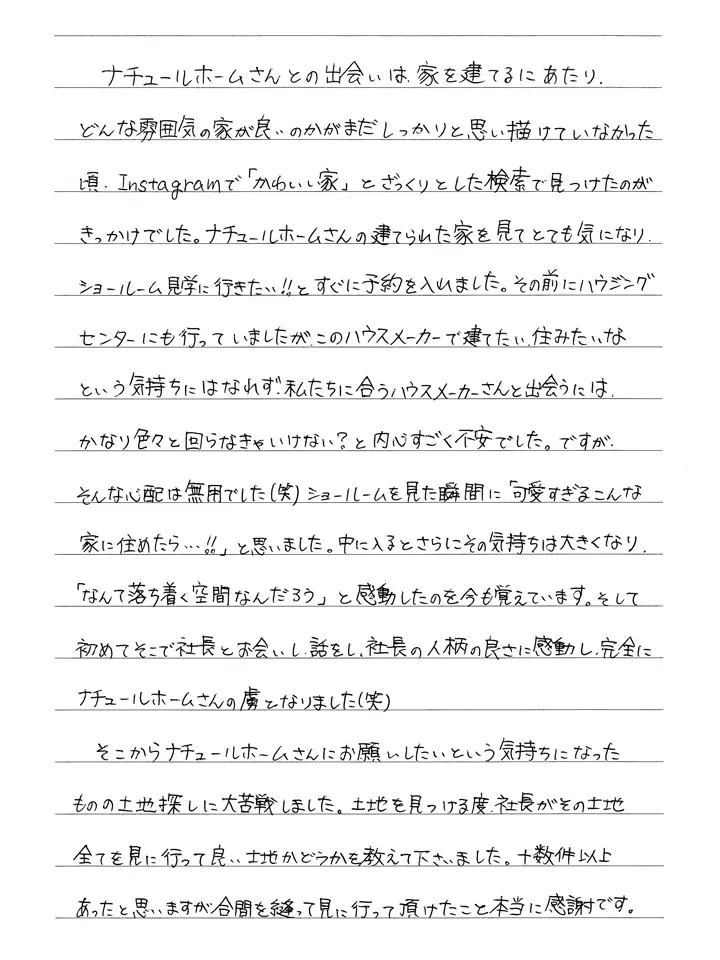 ナチュールホームさんとの出会いは、家を建てるにあたり、
どんな雰囲気の家が良いのかがまだしっかりと思い描けていなかった
頃、Instagramで「かわいい家」とざっくりとした検索で見つけたのが
きっかけでした。ナチュールホームさんの建てられた家を見てとても気になり、
ショールーム見学に行きたい!!とすぐに予約を入れました。その前にハウジング
センターにも行っていましたが、このハウスメーカーで建てたい、住みたいな
という気持ちにはなれず、私たちに合うハウスメーカーさんと出会うには、
かなり色々と回らなきゃいけない?と内心すごく不安でした。ですが、
そんな心配は無用でした(笑)ショールームを見た瞬間に「可愛すぎるこんな
家に住めたら…!!」と思いました。中に入るとさらにその気持ちは大きくなり、
「なんて落ち着く空間なんだろう」と感動したのを今も覚えています。そして
初めてそこで社長とお会いし、話をし、社長の人柄の良さに感動し、完全に
ナチュールホームさんの虜となりました(笑)
そこからナチュールホームさんにお願いしたいという気持ちになった
ものの土地探しに大苦戦しました。土地を見つける度、社長がその土地
全てを見に行って良い土地かどうかを教えて下さいました。十数件以上
あったと思いますが合間を縫って見に行って頂けたこと本当に感謝です。